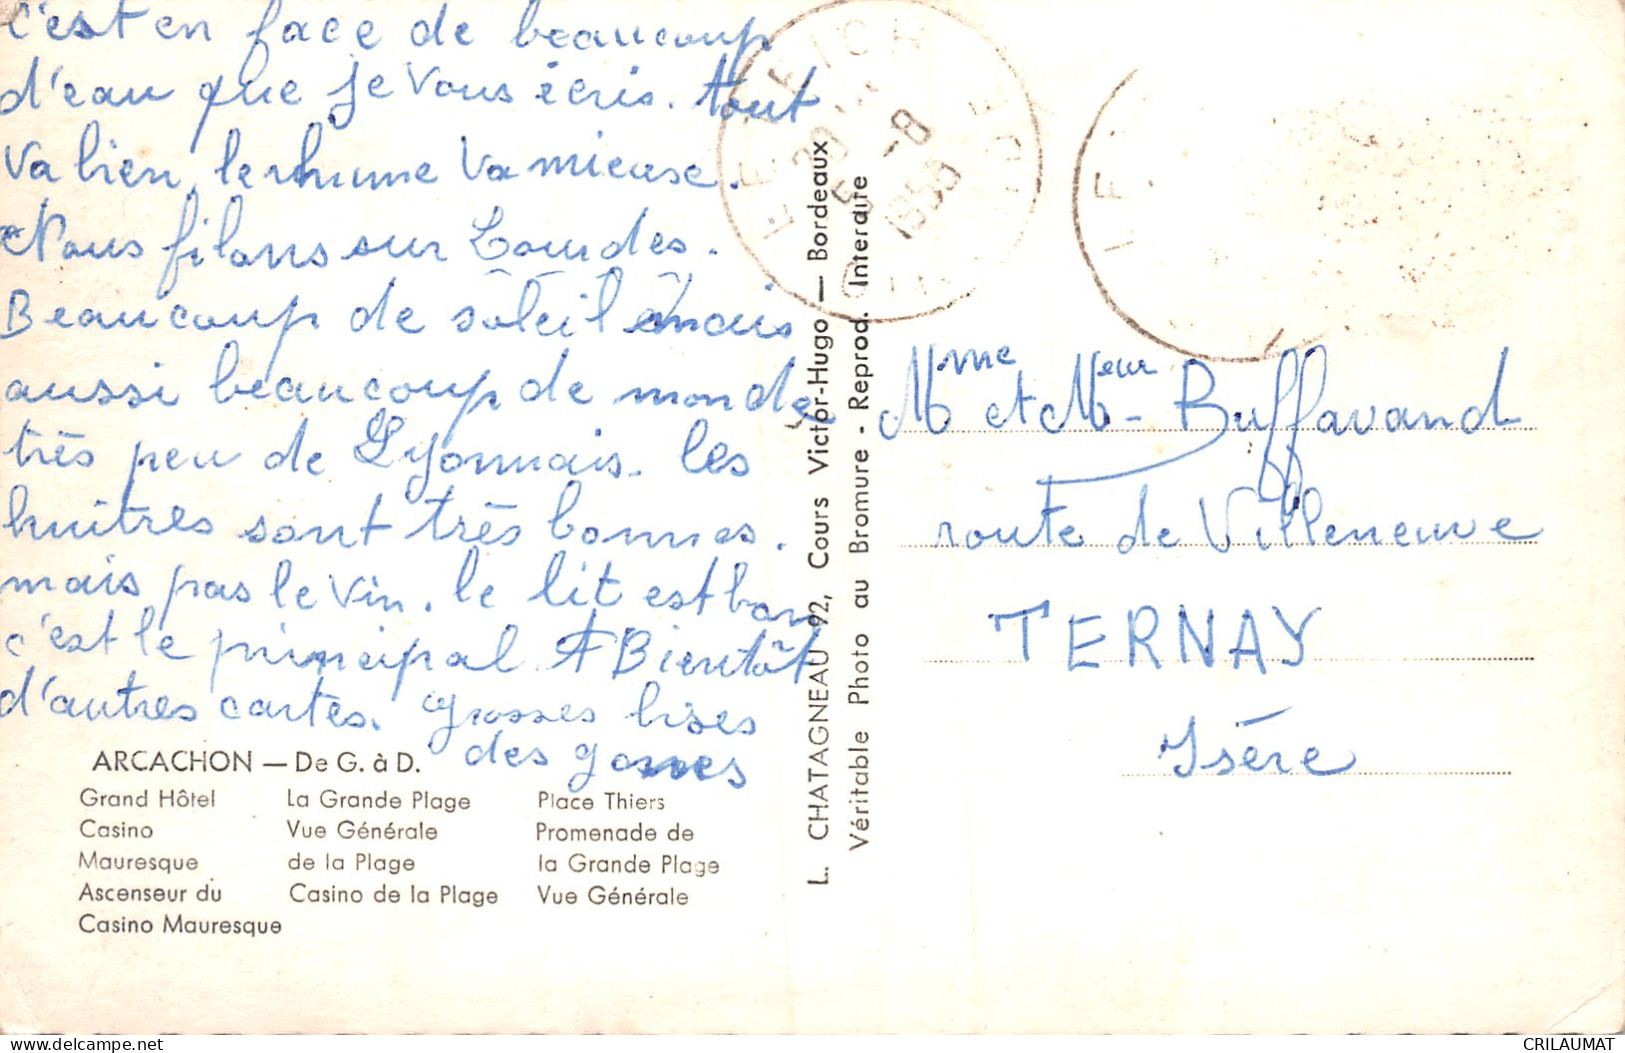 c'est en face de beaucoup
d'eau que je vous écris. tout
va bien, le rhume va mieuse.
Nous filons sur Lourdes.
Beaucoup de sôleil mais
aussi beaucoup de monde
très peu de Lyonnais. les
huitres sont très bonnes.
mais pas le vin. le lit est bon
c'est le principal A Bientôt
d'autres cartes. grosses bises
des gones
ARCACHON — De G. à D.
Grand Hôtel
Casino
Mauresque
Ascenseur du
Casino Mauresque
La Grande Plage
Vue Générale
de la Plage
Casino de la Plage
Place Thiers
Promenade de
la Grande Plage
Vue Générale
L. CHATAGNEAU 92, Cours Victor-Hugo — Bordeaux
Véritable Photo au Bromure - Reprod. Interdite
5 -8
Mme et Meur Buffavand
route de Villeneuve
TERNAY
Isère
CRILAUMAT